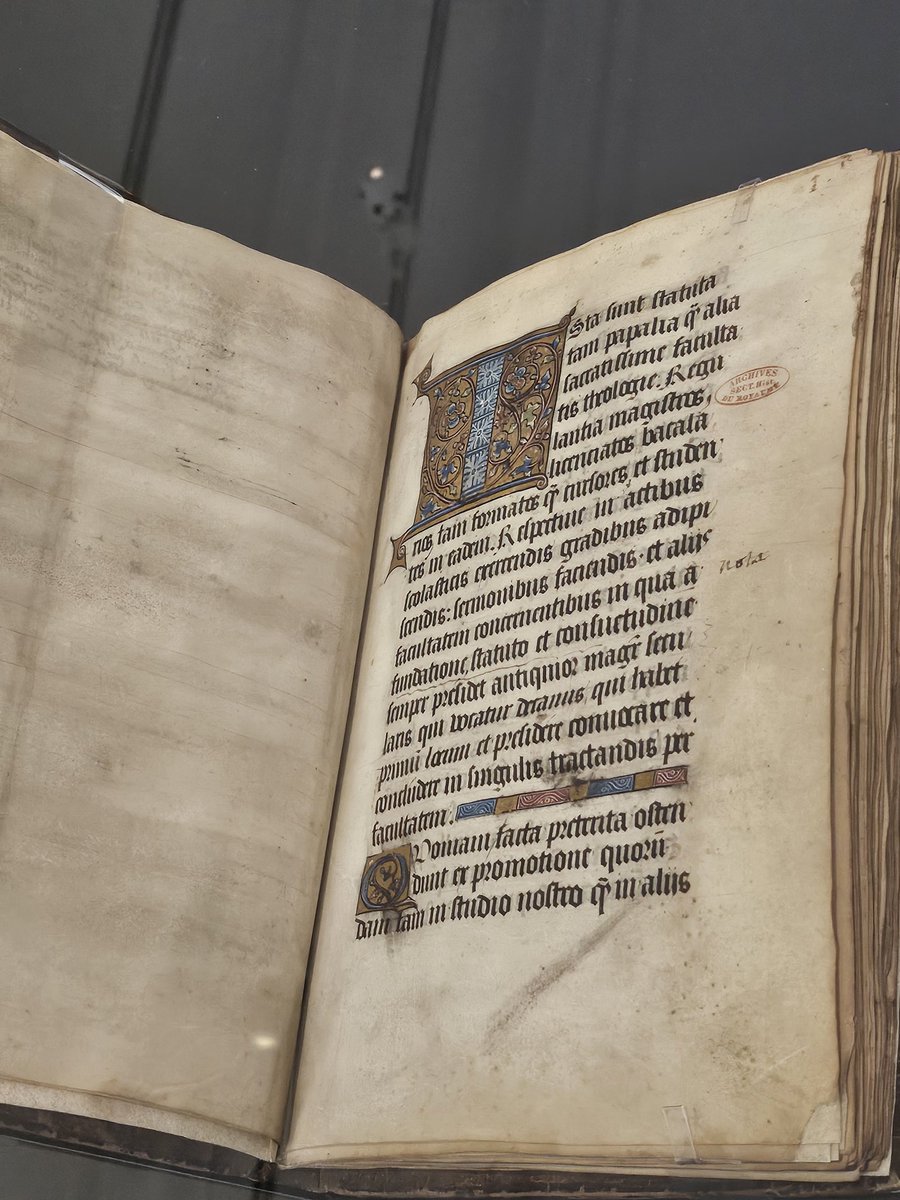 Ista sunt statuta
tam papalia q̄ alia
sacratissime faculta
tis theologie. Regu
lantia magistros,
licenciatos bacala
rios tam formatos q̄ cursores, et studen
tes in eadem. Respectiue in actibus
scolasticis exercendis gradibus adipi
scendis: sermonibus faciendis. et alijs
facultatem concernentibus in qua a
fundatione, statuto et consuetudine
semper presidet antiquior magr̄ secu
laris qui vocatur decanus, qui habet
primū locum et presidere conuocare et
concludere in singulis tractandis per
facultatem.
Quoniam facta preterita osten
dunt ex promotione quorū
dam tam in studio nostro q̄ in alijs
ARCHIVES
SECT. Hist.
DU ROYAUME
Nota
1